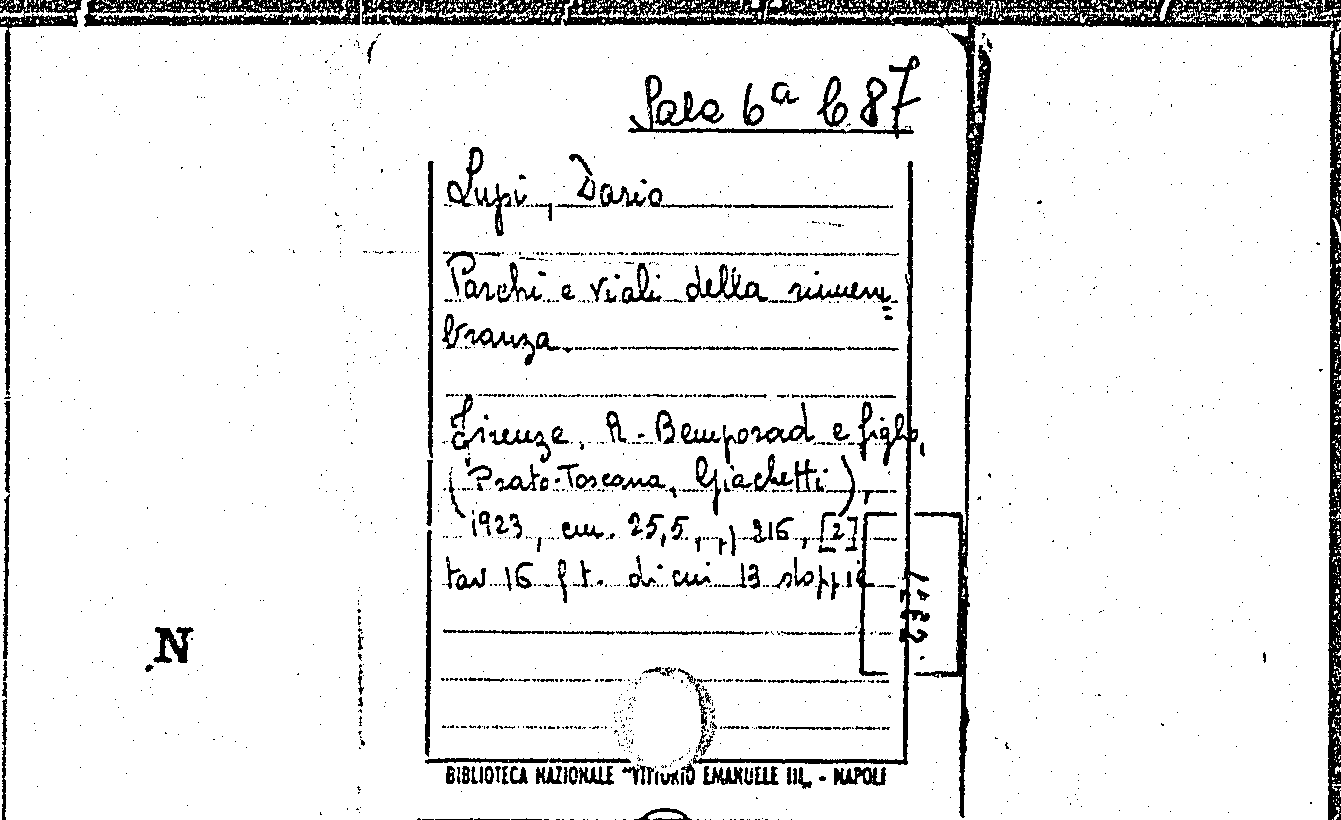 Sala 6ª C 87
Lupi, Dario
Parchi e viali della rimem
branza.
Firenze. R. Bemporad e figlio,
(Prato-Toscana, Giachetti)
1923, cm. 25,5, p 216, [2]
tav 16 f t. di cui 13 doppie
N
BIBLIOTECA NAZIONALE "VITTORIO EMANUELE III„ - NAPOLI